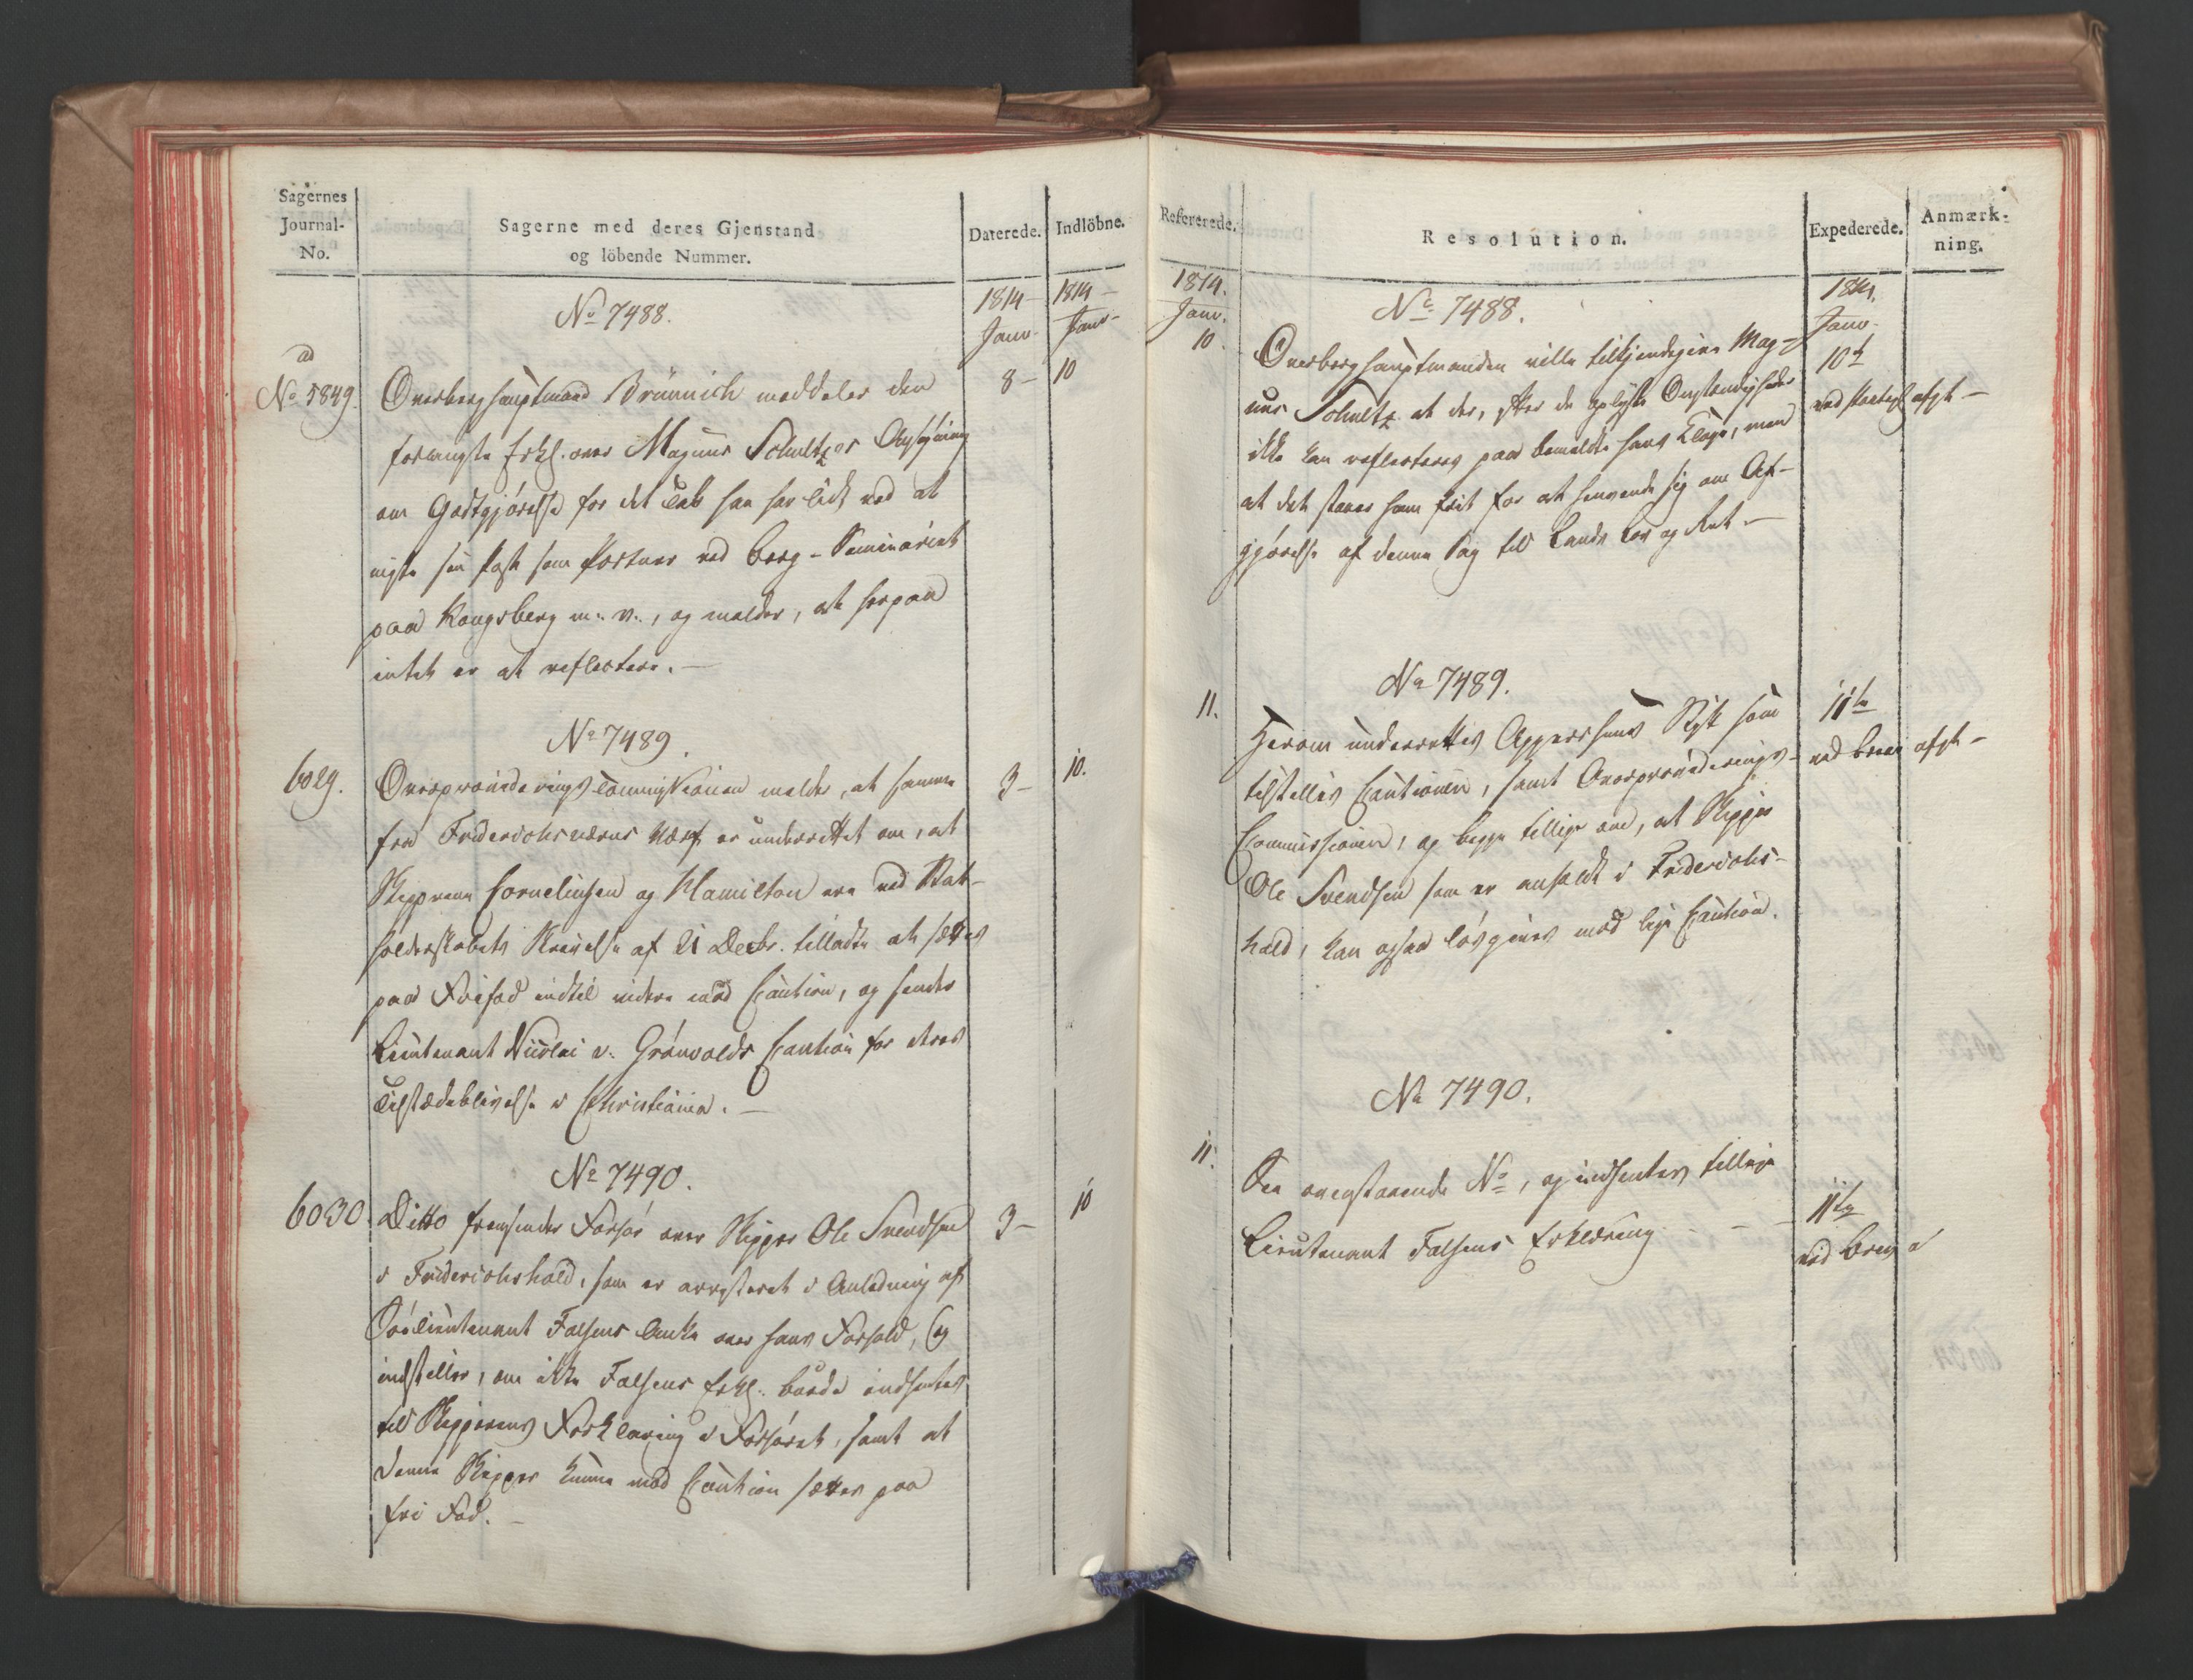 Sagernes
Journal-
No.
Sagerne med deres Gjenstand
og löbende Nummer.
Daterede.
Indlöbne.
1814 -
Janv.
1814 -
Janv -
No 7488.
ad
No 5849.
8 -
10
Overberghauptmand Brünnich meddeler den
forlangte Erkl. over Magnus Schultzes Ansøgning
om Godtgjörelse for det Tab han har lidt ved at
miste sin Post som Portner ved Berg-Seminariet
paa Kongsberg m. v., og melder, at herpaa
intet er at reflectere. -
No 7489.
6029.
3 -
10.
Overprovideringscommissionen melder, at samme
fra Friderichsværns Værft er underrettet om, at
Skipperne Corneliusen og Hamilton ere ved Stat-
holderskabets Skrivelse af 21 Decbr. tilladte at sættes
paa Friefod indtil videre mod Caution, og sender
Lieutenant Nicolai v. Grönvolds Caution for deres
Tilstædeblivelse i Christiania. -
No 7490.
6030.
3 -
10
Ditto fremsender Forhör over Skipper Ole Svendsen
i Friderichshald, som er arresteret i Anledning af
Söelieutenant Falsens Anke over hans Forhold, og
indstiller, om ikke Falsens Erkl. burde indhentes
til Skipperens Forklaring i Forhöret, samt at
denne Skipper kunne mod Caution sættes paa
fri Fod. -
Refererede.
Resolution.
Expederede.
Anmærk-
ning.
1814.
Janv.
10
No 7488.
1814.
Janv.
10de
Overberghauptmanden ville tilkjendegive Mag-
nus Schultz at der, efter de oplyste Omstændigheder
ikke kan reflecteres paa bemeldte hans Klage, men
at det staaer ham frit for at henvende sig om Af-
gjörelse af denne Sag til Lands Lov og Ret. -
afgt -
No 7489.
11.
11te
ved Brev
afgt -
Herom underrettes Aggershuus Stift som
tilstilles Cautionen, samt Overproviderings-
Commissionen, og begge tillige om, at Skipper
Ole Svendsen som er anholdt i Friderichs-
hald, kan ogsaa lösgives mod lige Caution.
No 7490.
11.
11te
ved Brev
a
See ovenstaaende No, og indhentes tillige
Lieutenant Falsens Erklæring - - -